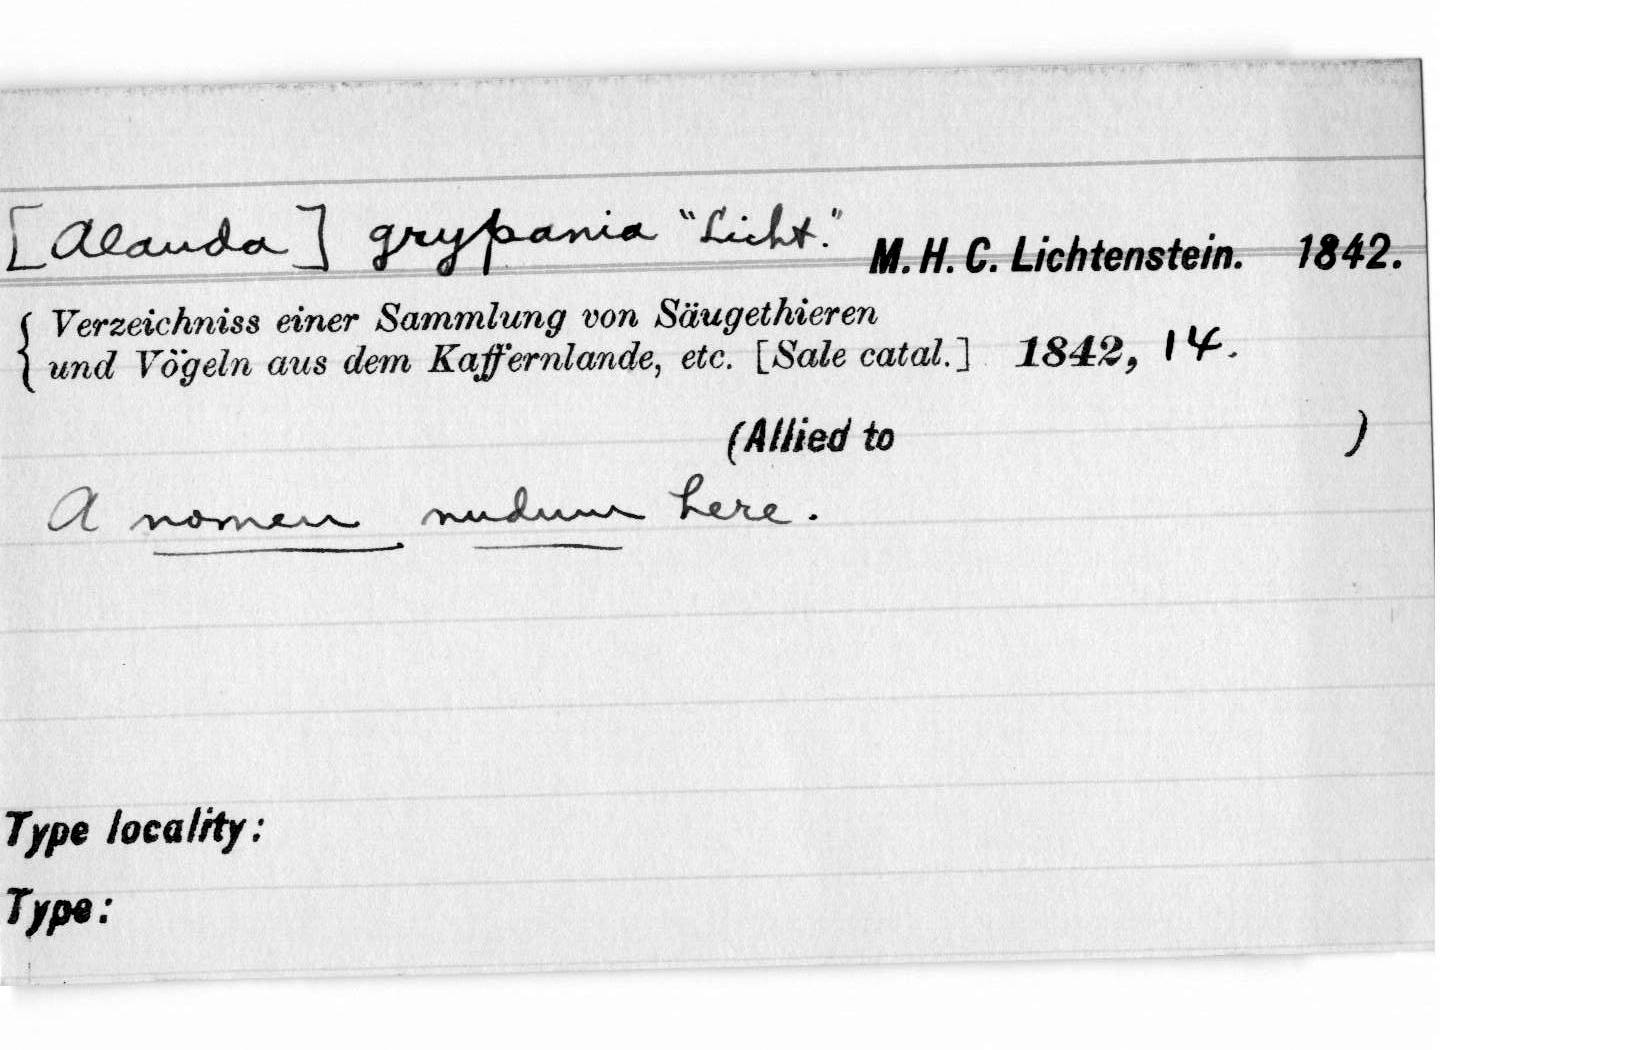 [Alauda] grypania "Licht." M. H. C. Lichtenstein. 1842.
{ Verzeichniss einer Sammlung von Säugethieren
und Vögeln aus dem Kaffernlande, etc. [Sale catal.] 1842, 14.
(Allied to )
A nomen nudum here.
Type locality:
Type: